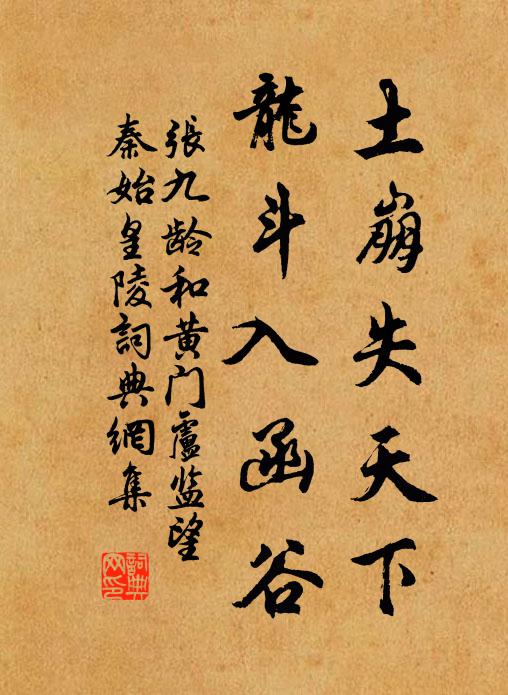 土崩失天下
龍斗入函谷
張九龄和黄门盧监望
秦始皇陵詞典網集
詞典
网印